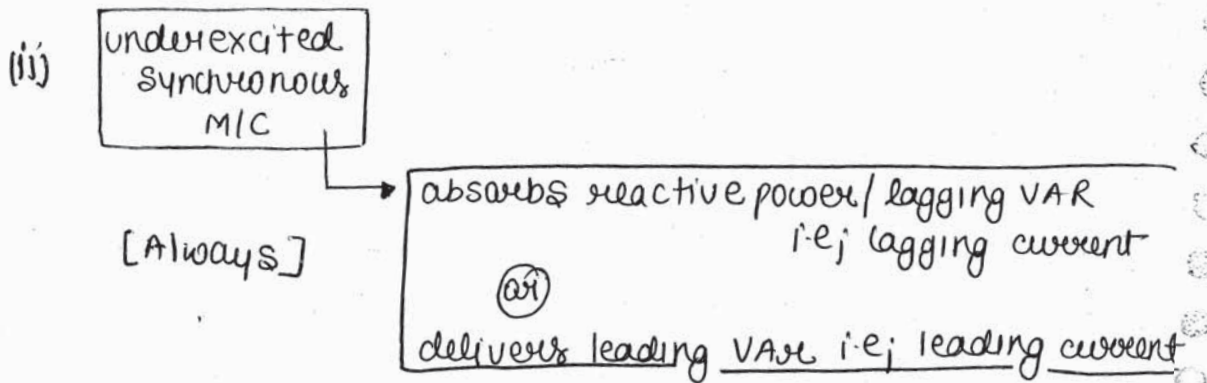 (ii)
underexcited
synchronous
M/C
absorbs reactive power/ lagging VAR
i.e; lagging current
[Always]
or
delivers leading VAR i.e; leading current